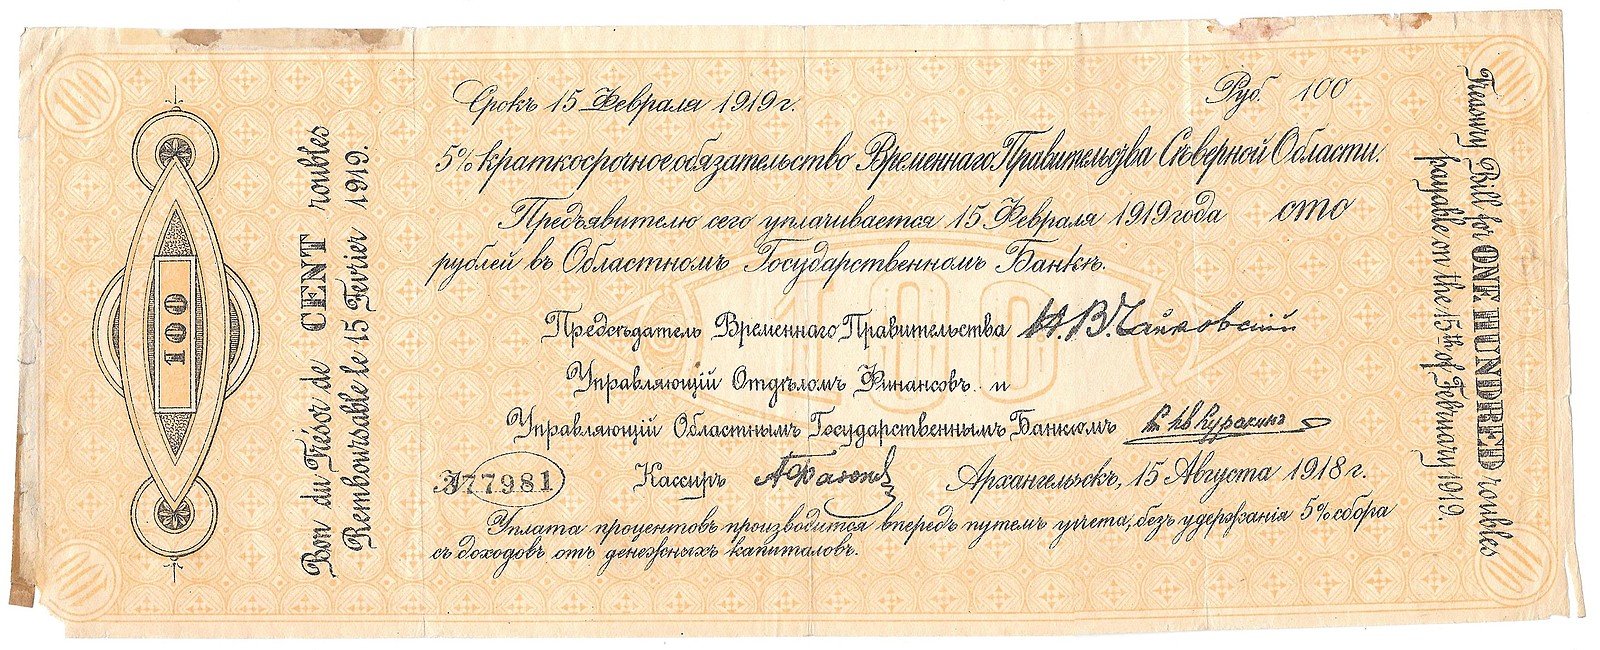 100
Bon du Trésor de CENT roubles
Remboursable le 15 Fevrier 1919.
Срокъ 15 Февраля 1919 г.
Руб. 100
5% краткосрочное обязательство Временнаго Правительства Сѣверной Области.
Предъявителю сего уплачивается 15 Февраля 1919 года сто
рублей въ Областномъ Государственномъ Банкѣ.
100
Предсѣдатель Временнаго Правительства Н. В. Чайковскій
Управляющій Отдѣломъ Финансовъ и
Управляющій Областнымъ Государственнымъ Банкомъ Куракинъ
377981
Кассиръ
Архангельскъ, 15 Августа 1918 г.
Уплата процентовъ производится впередъ путемъ учета, безъ удержанія 5% сбора
съ доходовъ отъ денежныхъ капиталовъ.
Treasury Bill for ONE HUNDRED roubles
payable on the 15th of February 1919.